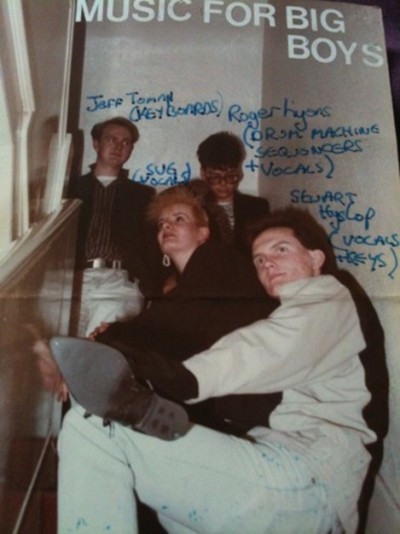 MUSIC FOR BIG
BOYS
Jeff Toman
(KEYBOARDS)
Roger Lyons
(DRUM MACHINE
SEQUENCERS
+ VOCALS)
SUE
(VOCALS)
STUART
Hyslop
(VOCALS
KEYS)